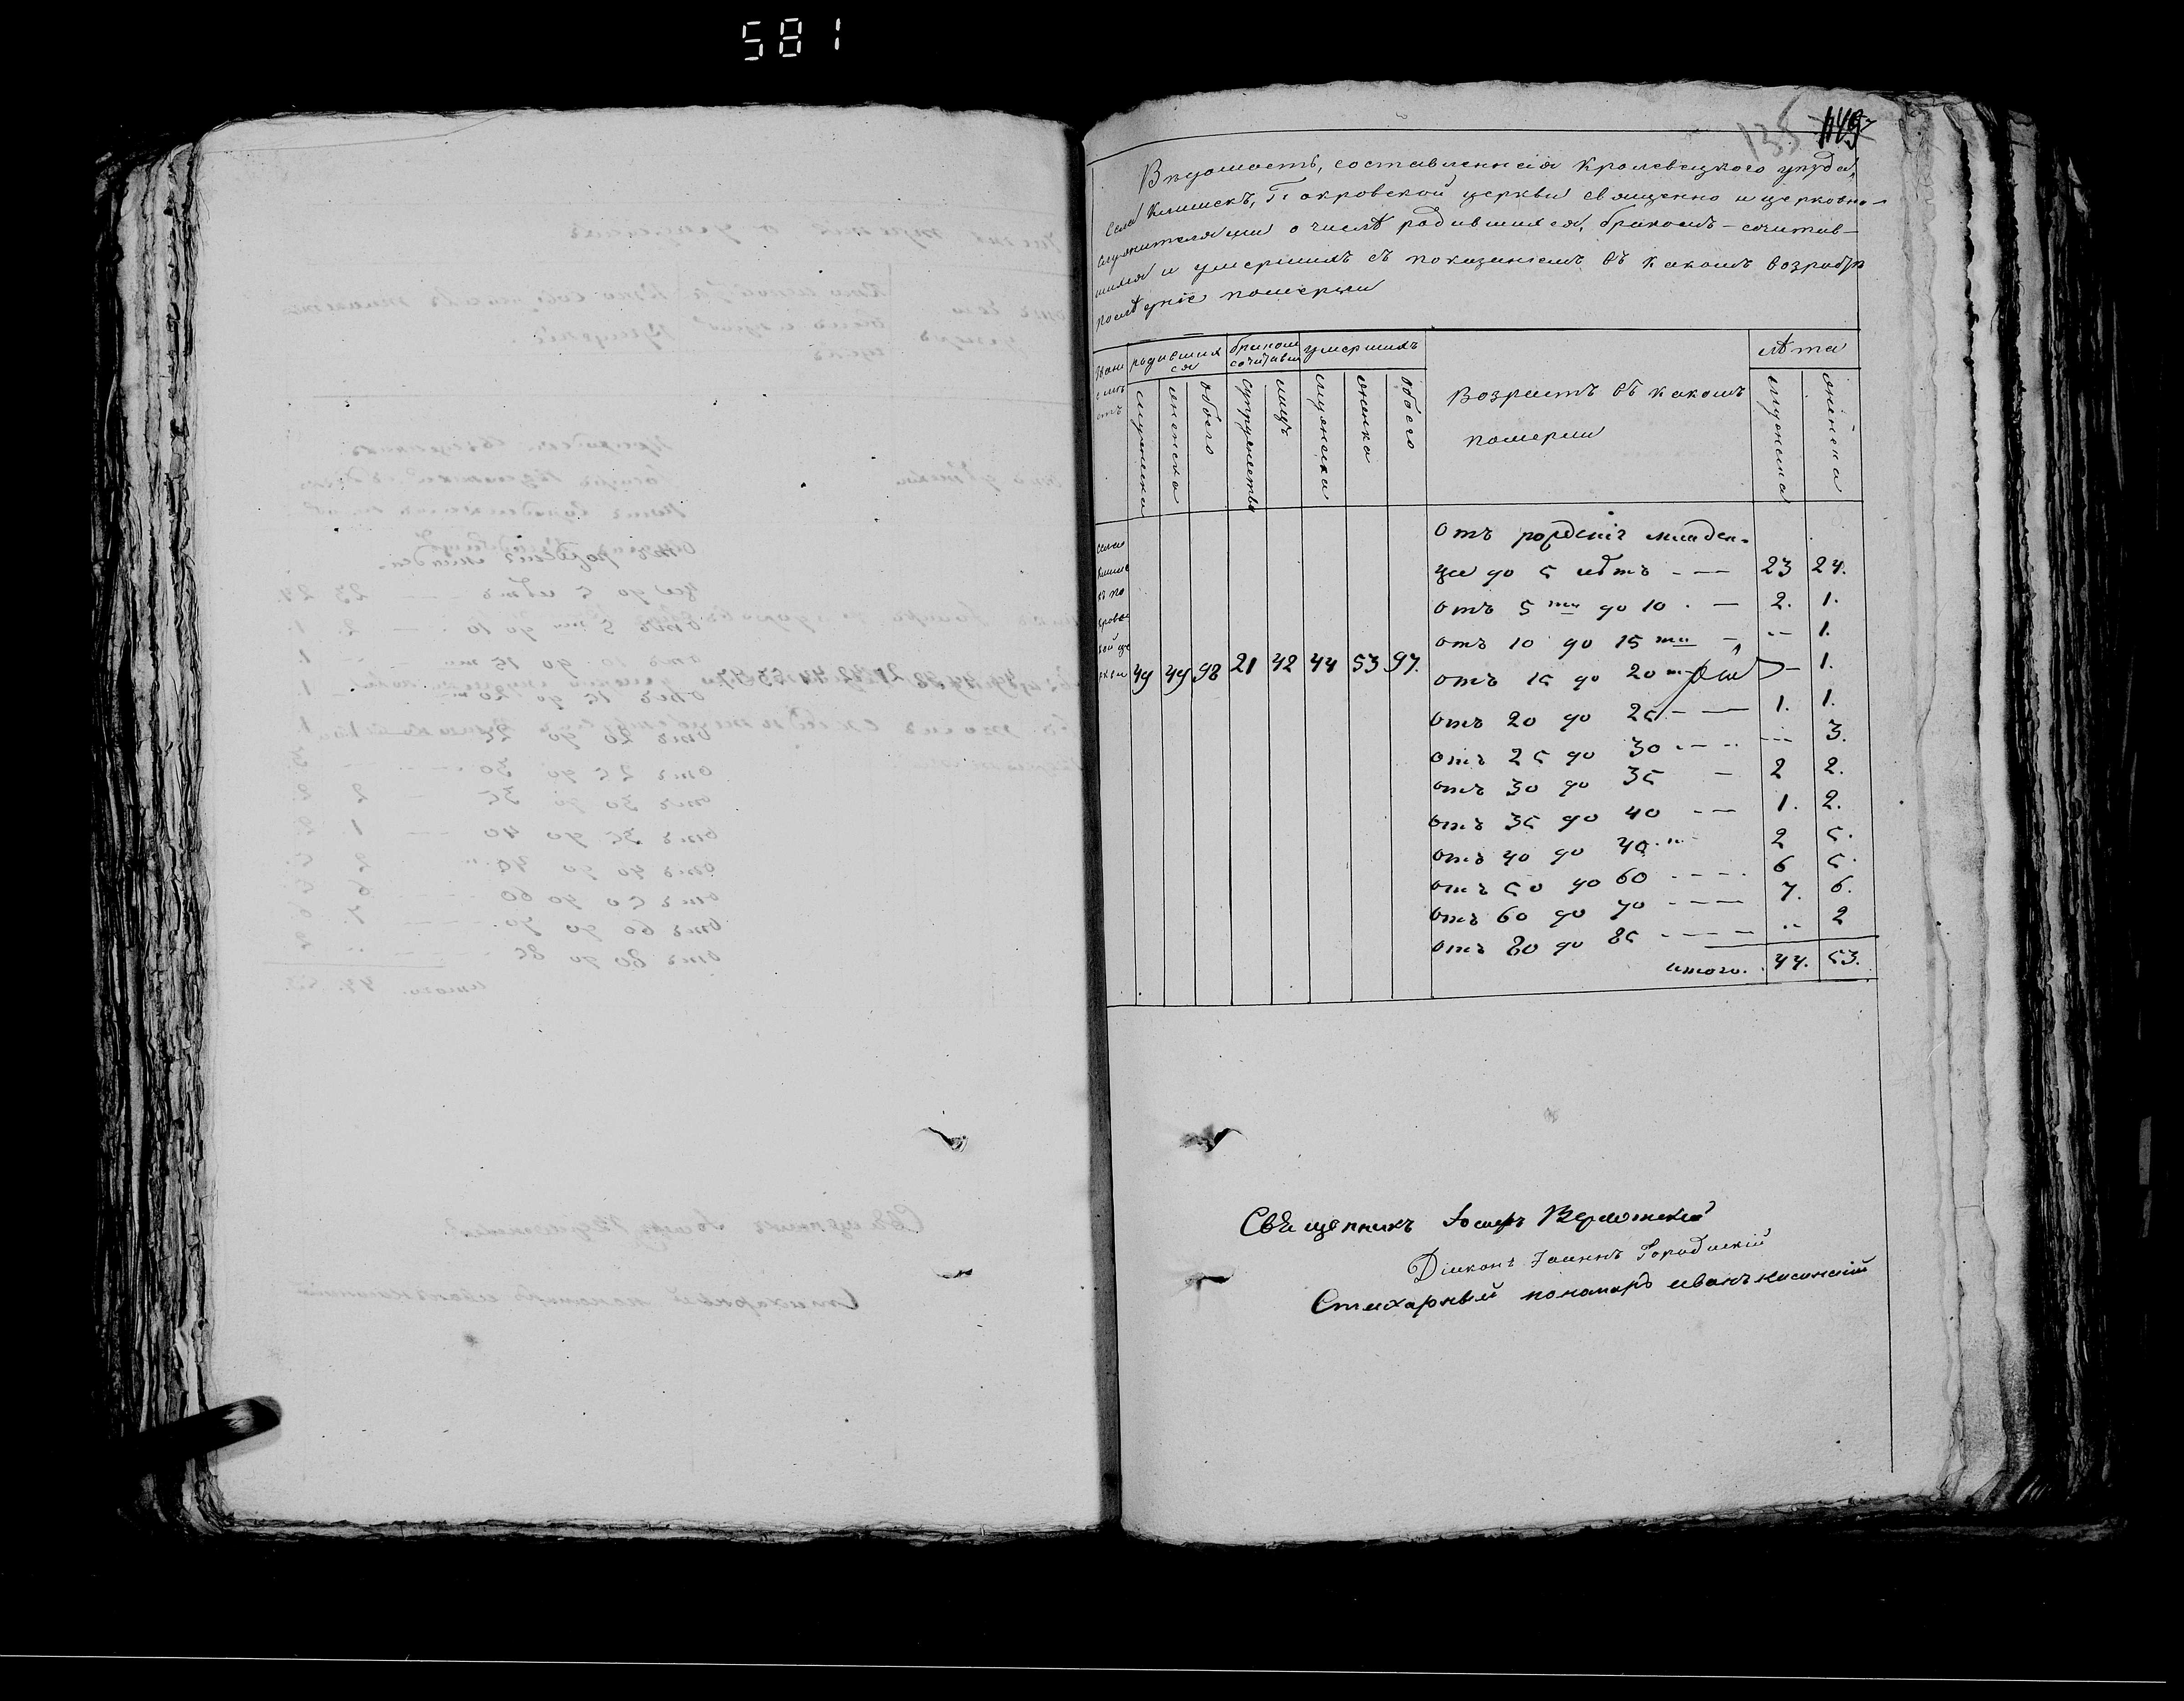 581
135 149
Вѣдомость, составленная Кролевецкого уѣзда,
села Клишекъ, Покровской церкви священно и церковно-
служителями о числѣ родившихся, бракомъ-сочитав-
шихся и умершихъ съ показаніемъ въ какомъ возрастѣ
послѣдніе померли
родившихся бракомъ сочитавш умершихъ Возрастъ въ какомъ померли лѣта
мужеска женска обоего супружествъ лицъ мужеска женска обоего мужеска женска
села Клишекъ Покровской церкви 49 49 98 21 42 44 53 97.
отъ рожденія младен-
ца до 5 лѣтъ - -- 23 24.
отъ 5 ти до 10 . - 2. 1.
отъ 10 до 15 ти - -- 1.
отъ 15 до 20 ти - 1.
отъ 20 до 25 - -- 1. 1.
отъ 25 до 30 --- --- 3.
отъ 30 до 35 - 2 2.
отъ 35 до 40 -- 1. 2.
отъ 40 до 40 2 5.
отъ 50 до 60 ---- 6 5.
отъ 60 до 70 ---- 7. 6.
отъ 80 до 85 ---- .. 2
итого. 44. 53.
Священникъ Іосифъ
Діаконъ Іоаннъ Городискій
Стихарный пономарь Иванъ